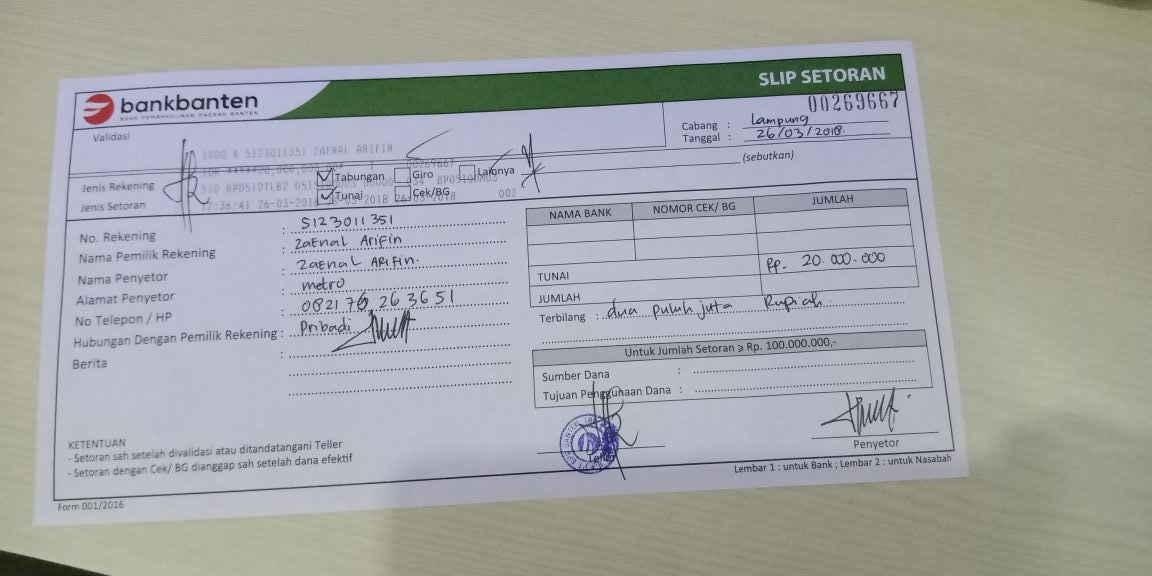 bankbanten
BANK PEMBANGUNAN DAERAH BANTEN
SLIP SETORAN
00269667
Validasi
Cabang : Lampung
Tanggal : 26/03/2018.
1000 K 5123011351 ZAENAL ARIFIN
IDR *****20,000,000.00* 00269667
Jenis Rekening Tabungan Giro Lainnya (sebutkan)
Jenis Setoran Tunai Cek/BG
12:36:41 26-03-2018 26-03-2018 002
No. Rekening : 5123011351
Nama Pemilik Rekening : ZaEnal Arifin
Nama Penyetor : ZaEnaL ARiFin.
Alamat Penyetor : metro
No Telepon / HP : 082176263651
Hubungan Dengan Pemilik Rekening : Pribadi
Berita :
NAMA BANK NOMOR CEK/ BG JUMLAH
TUNAI Rp. 20.000.000
JUMLAH
Terbilang : dua puluh juta Rupiah
Untuk Jumlah Setoran ≥ Rp. 100.000.000,-
Sumber Dana :
Tujuan Penggunaan Dana :
KETENTUAN
- Setoran sah setelah divalidasi atau ditandatangani Teller
- Setoran dengan Cek/ BG dianggap sah setelah dana efektif
Teller
Penyetor
Lembar 1 : untuk Bank ; Lembar 2 : untuk Nasabah
Form 001/2016